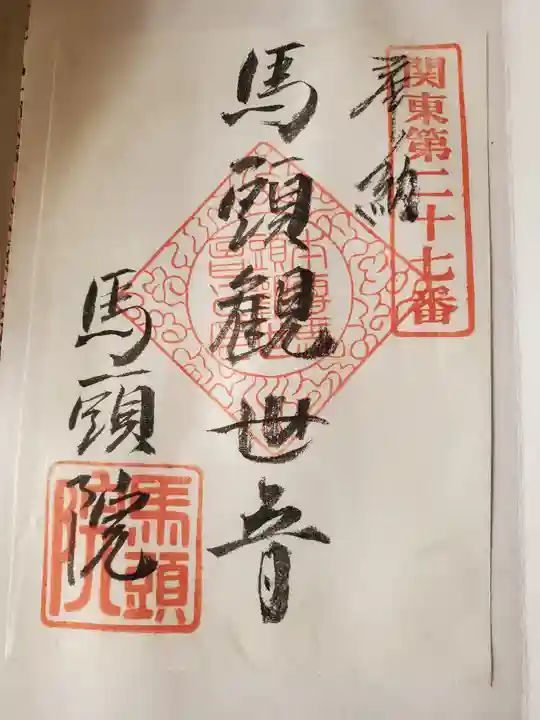 関東第二十七番
奉納
馬頭観世音
馬頭院
馬頭
院